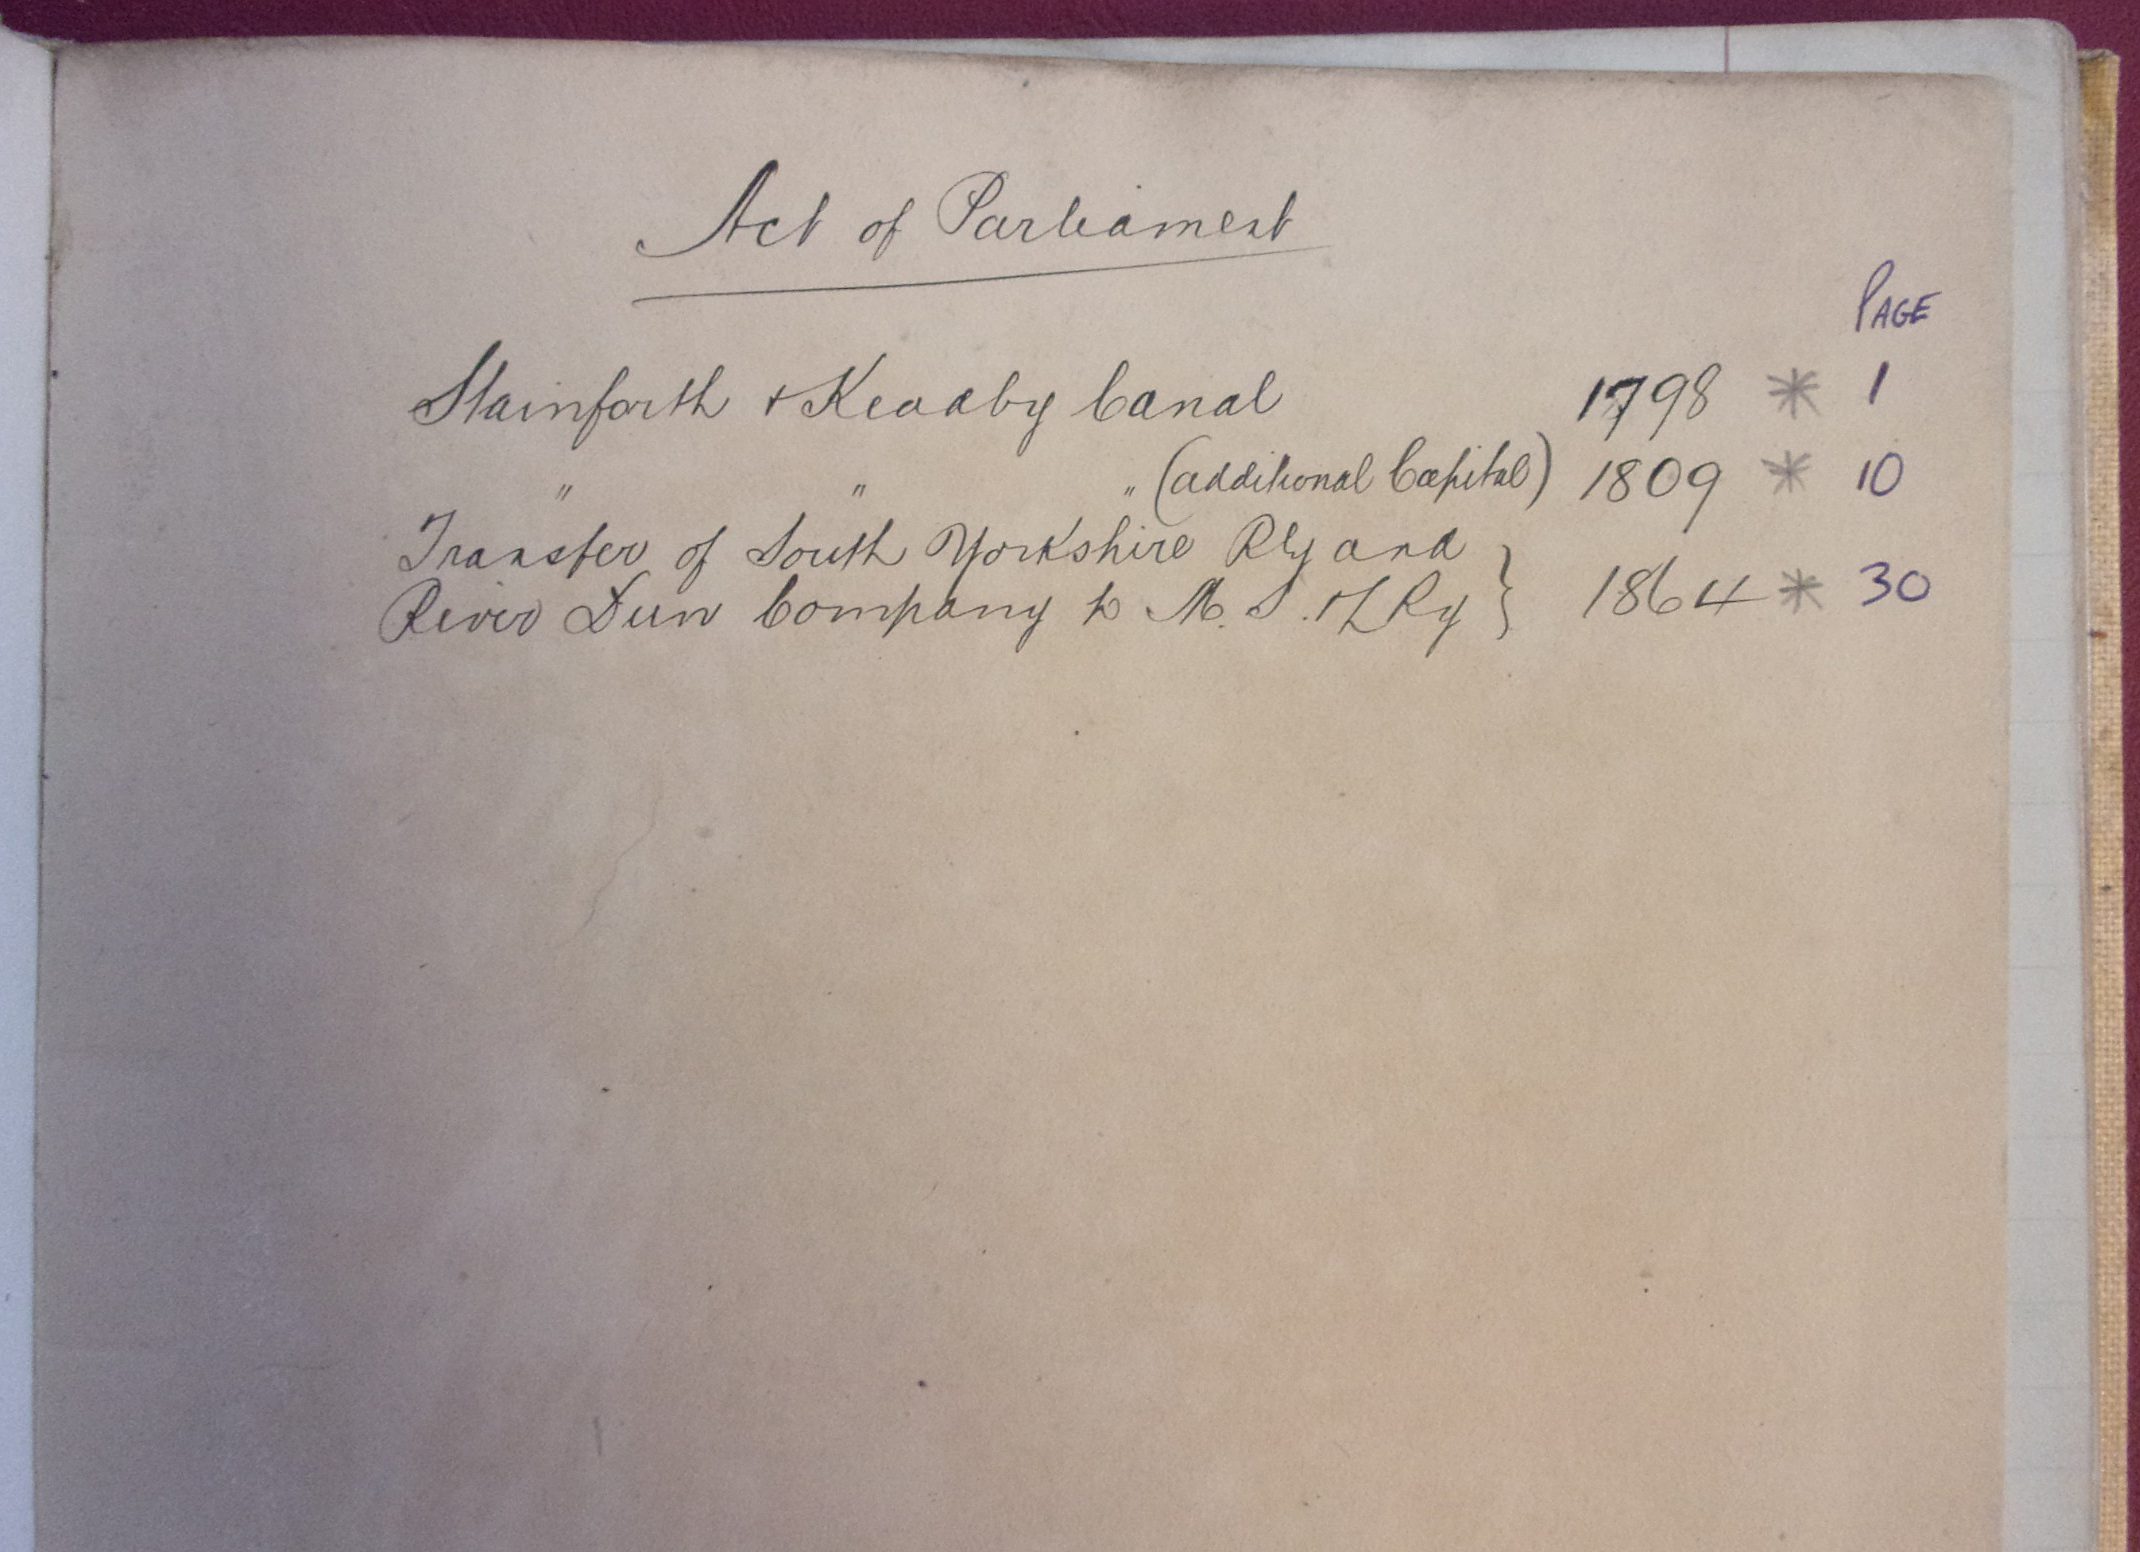 Act of Parliament
PAGE
Stainforth & Keadby Canal 1798 * 1
" " " (additional Capital) 1809 * 10
Transfer of South Yorkshire Rly and
River Dun Company to M. S. & L Ry } 1864 * 30